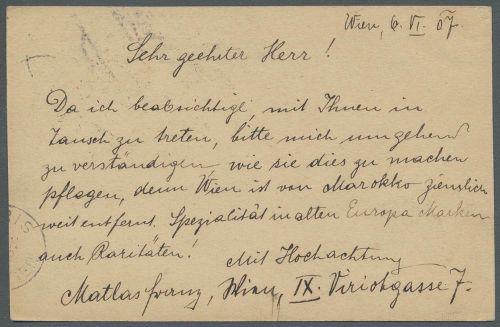 Wien, 6. VI. 07.
Sehr geehrter Herr!
Da ich beabsichtige, mit Ihnen in
Tausch zu treten, bitte mich umgehend
zu verständigen, wie sie dies zu machen
pflegen, denn Wien ist von Marokko ziemlich
weit entfernt. Spezialität in alten Europa Marken
auch Raritäten!
Mit Hochachtung
Wien, IX. Viriotgasse 7.